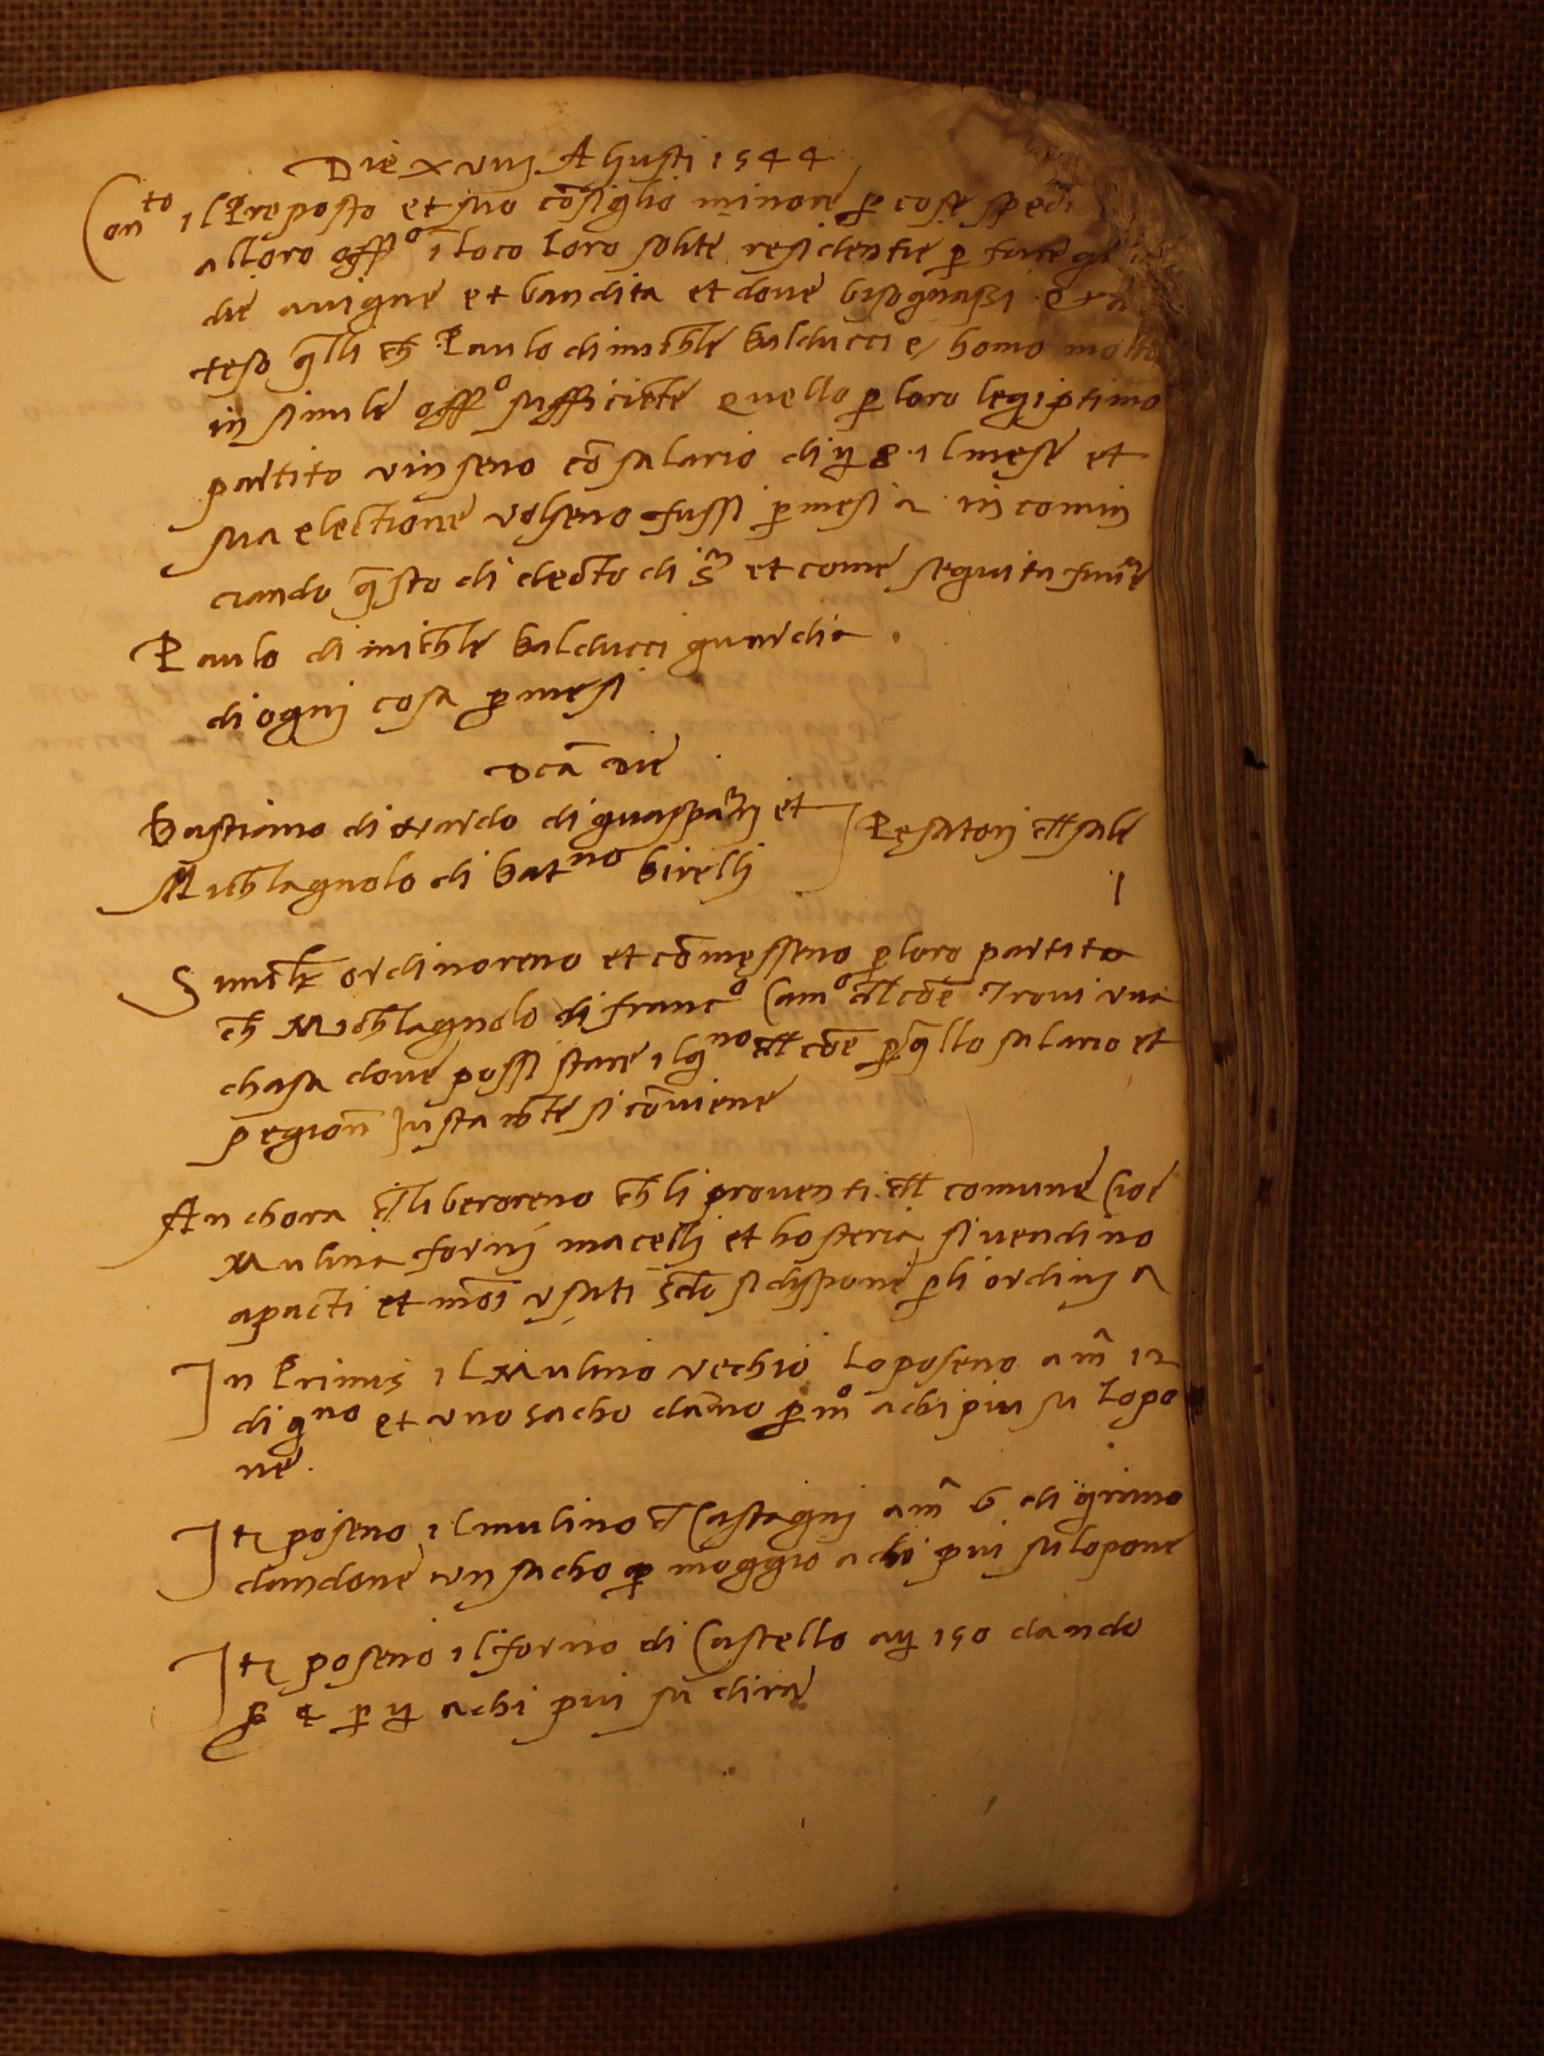 Die xviij Aghusti 1544
Conto il Proposto et suo cōsiglio minore p cose spedi
alloro offo ī loco loro solite residentie p fare
die avigne et bandita et dove bisognassi
teso qlli ch Paulo di michle balducci e homo molto
in simile offo sufficiēte quello p loro legiptimo
partito vinseno cō salario di 8 il mese et
sua electione volseno fussi p mesi 2 incomin
ciando qsto di decto di sa et come seguita
Paulo di michle balducci guardia
di ogni cosa p mesi
Dcā Die
Bastiano di nardo di guasparrj et
Michlagnolo di batno birellj
Pesatorj dl sale
Similr ordinoreno et cōmesseno p loro partito
ch Michlagnolo di franco Camo dl cōe trovi una
chasa dove possi stare il gno dl cōe p qllo salario et
pegion Justa mte si cōviene
Anchora dliberoreno ch li proventi dl comune Cioe
Mulina fornj macellj et hosteria si vendino
apacti et modi usati scdo si dispone p li ordinj 2
In Primis il Mulino vechio lo poseno a m 12
di gno et uno sacho dāno p mo a chi piu su lo po
ne.
Itr poseno il mulino d Castagnj a m 6 di grano
dandone un sacho p moggio a chi piu su lo pone
Itr poseno il forno di Castello a 150 dando
4 p a chi piu su dira